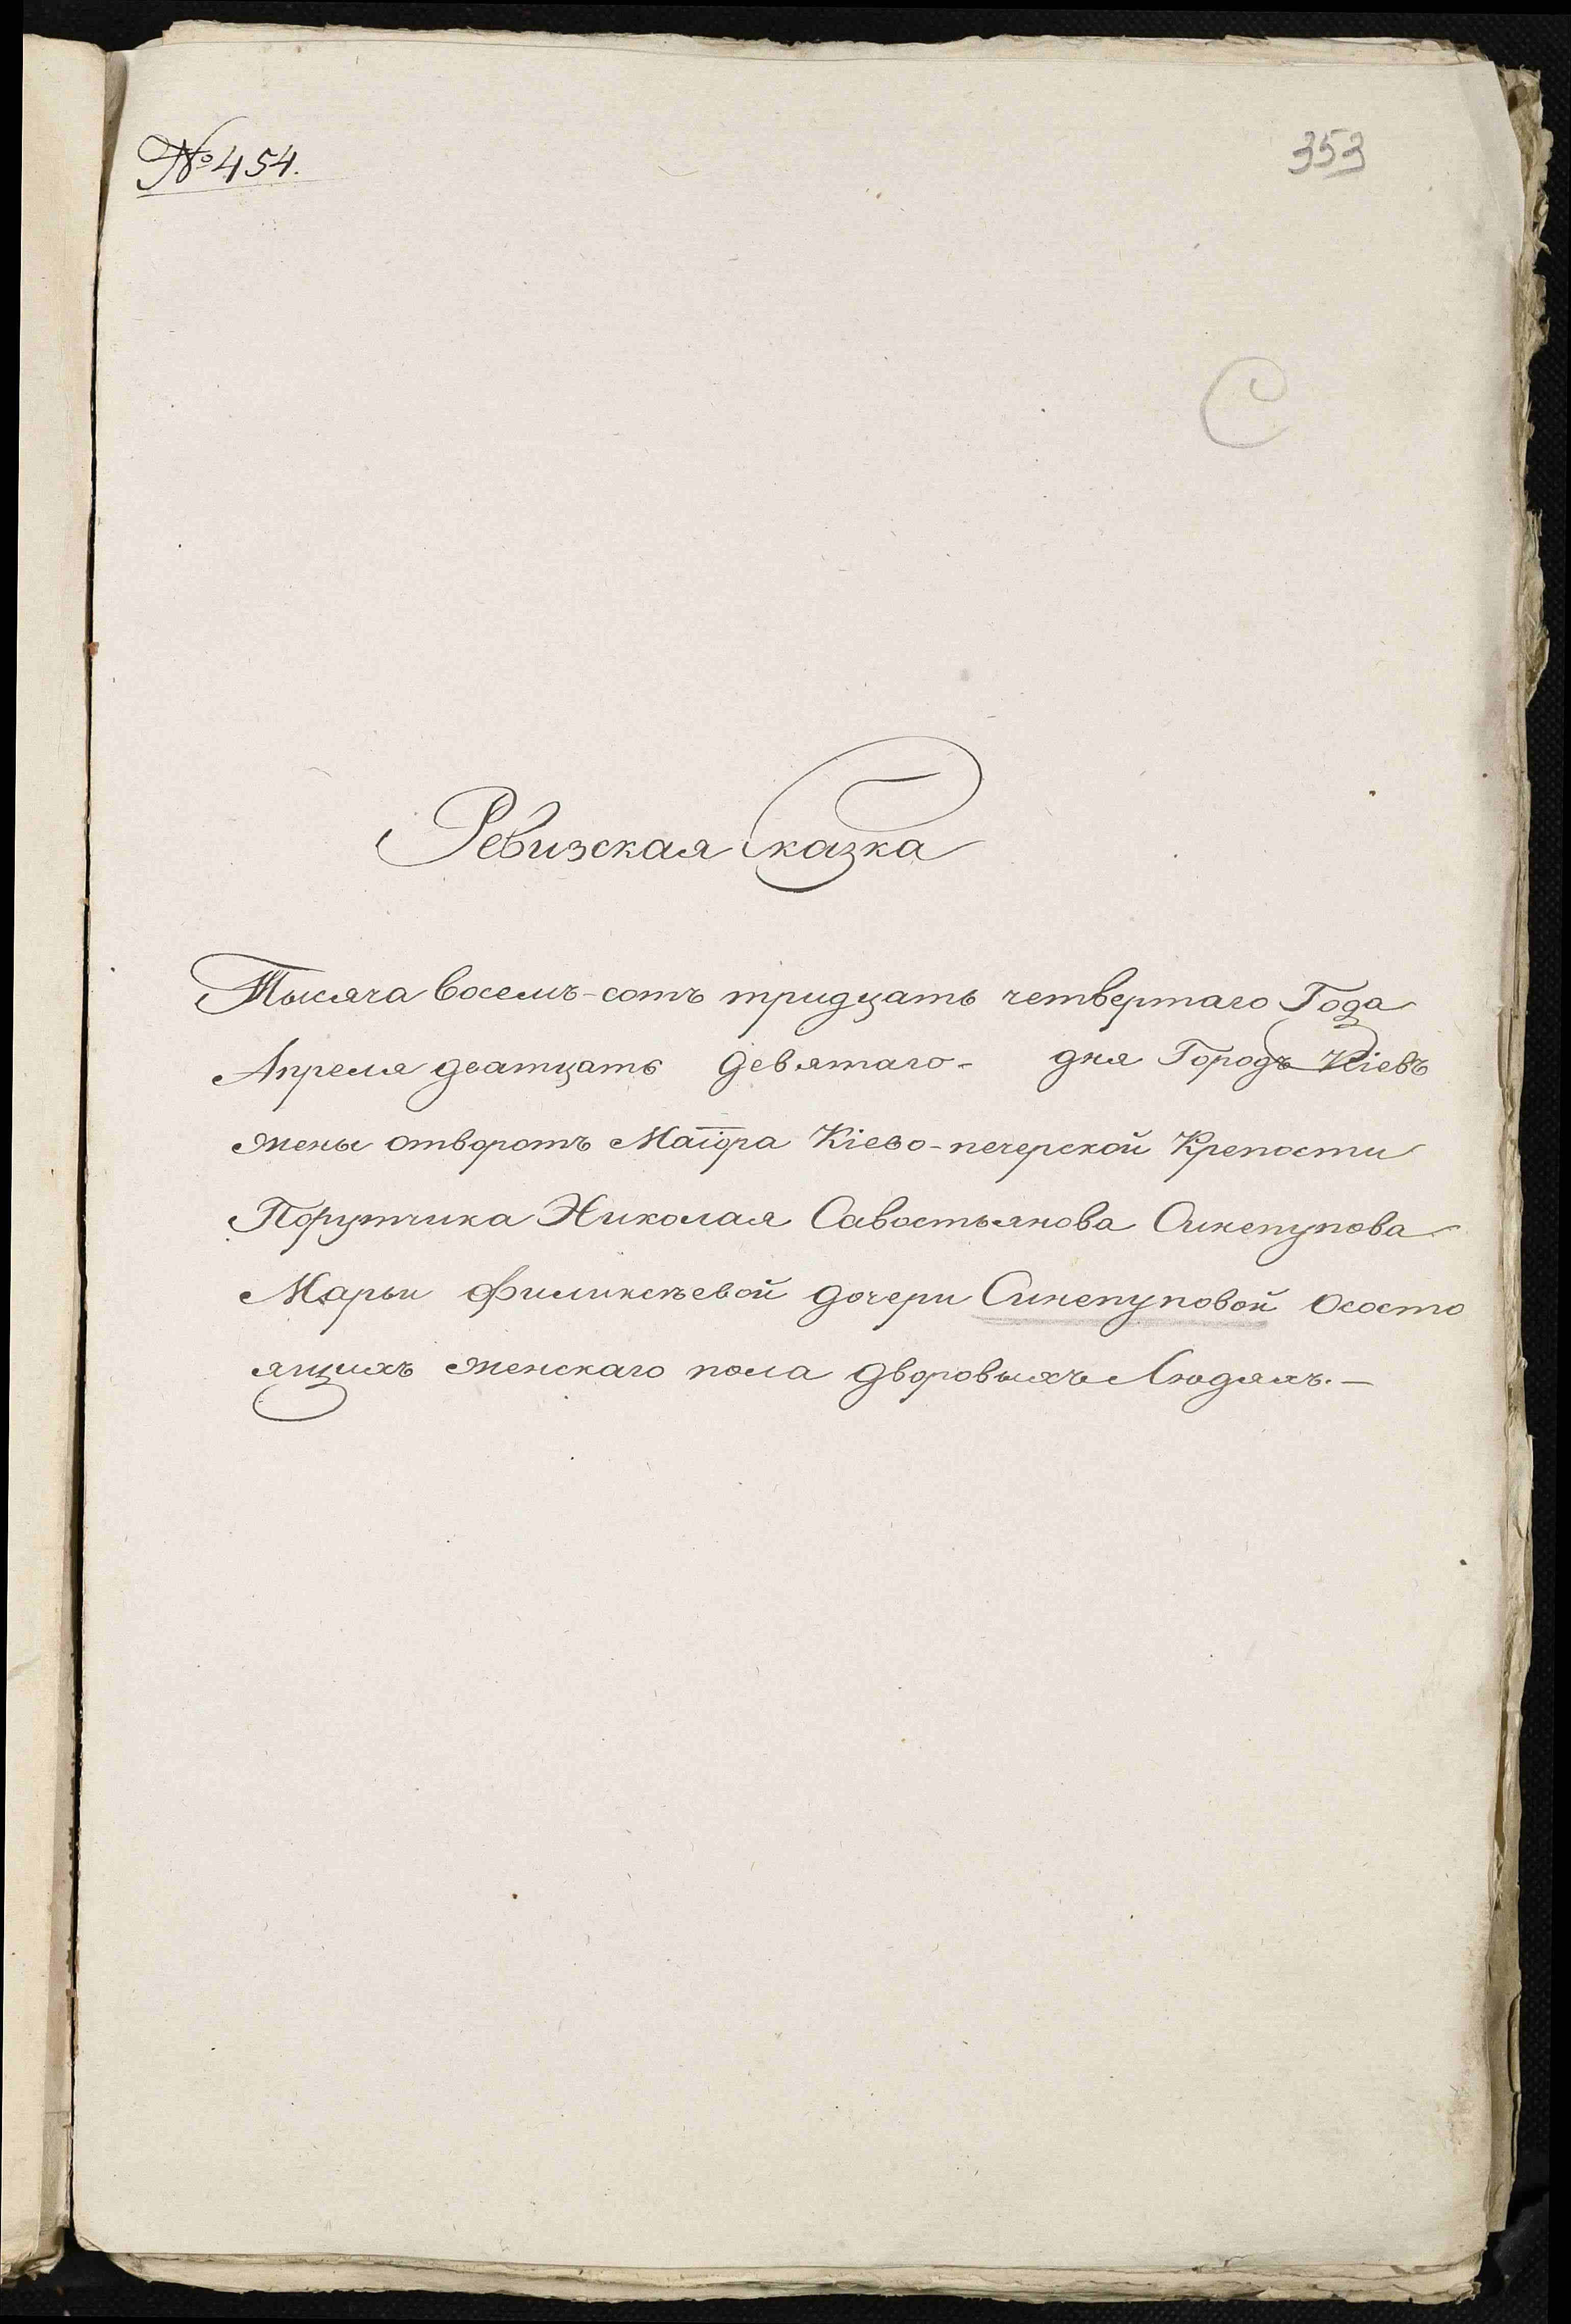 № 454.
353
С
Ревизская Сказка
Тысяча восемъ-сотъ тридцать четвертаго Года
Апреля дватцать девятаго- дня Городъ Кіевъ
жены отворотъ Маіора Кіево-печерской Крепости
Порутчика Николая Савостьянова Синепупова
Марьи Филиксъевой дочери Синепуповой Ососто
ящихъ женскаго пола дворовыхъ Людяхъ.—